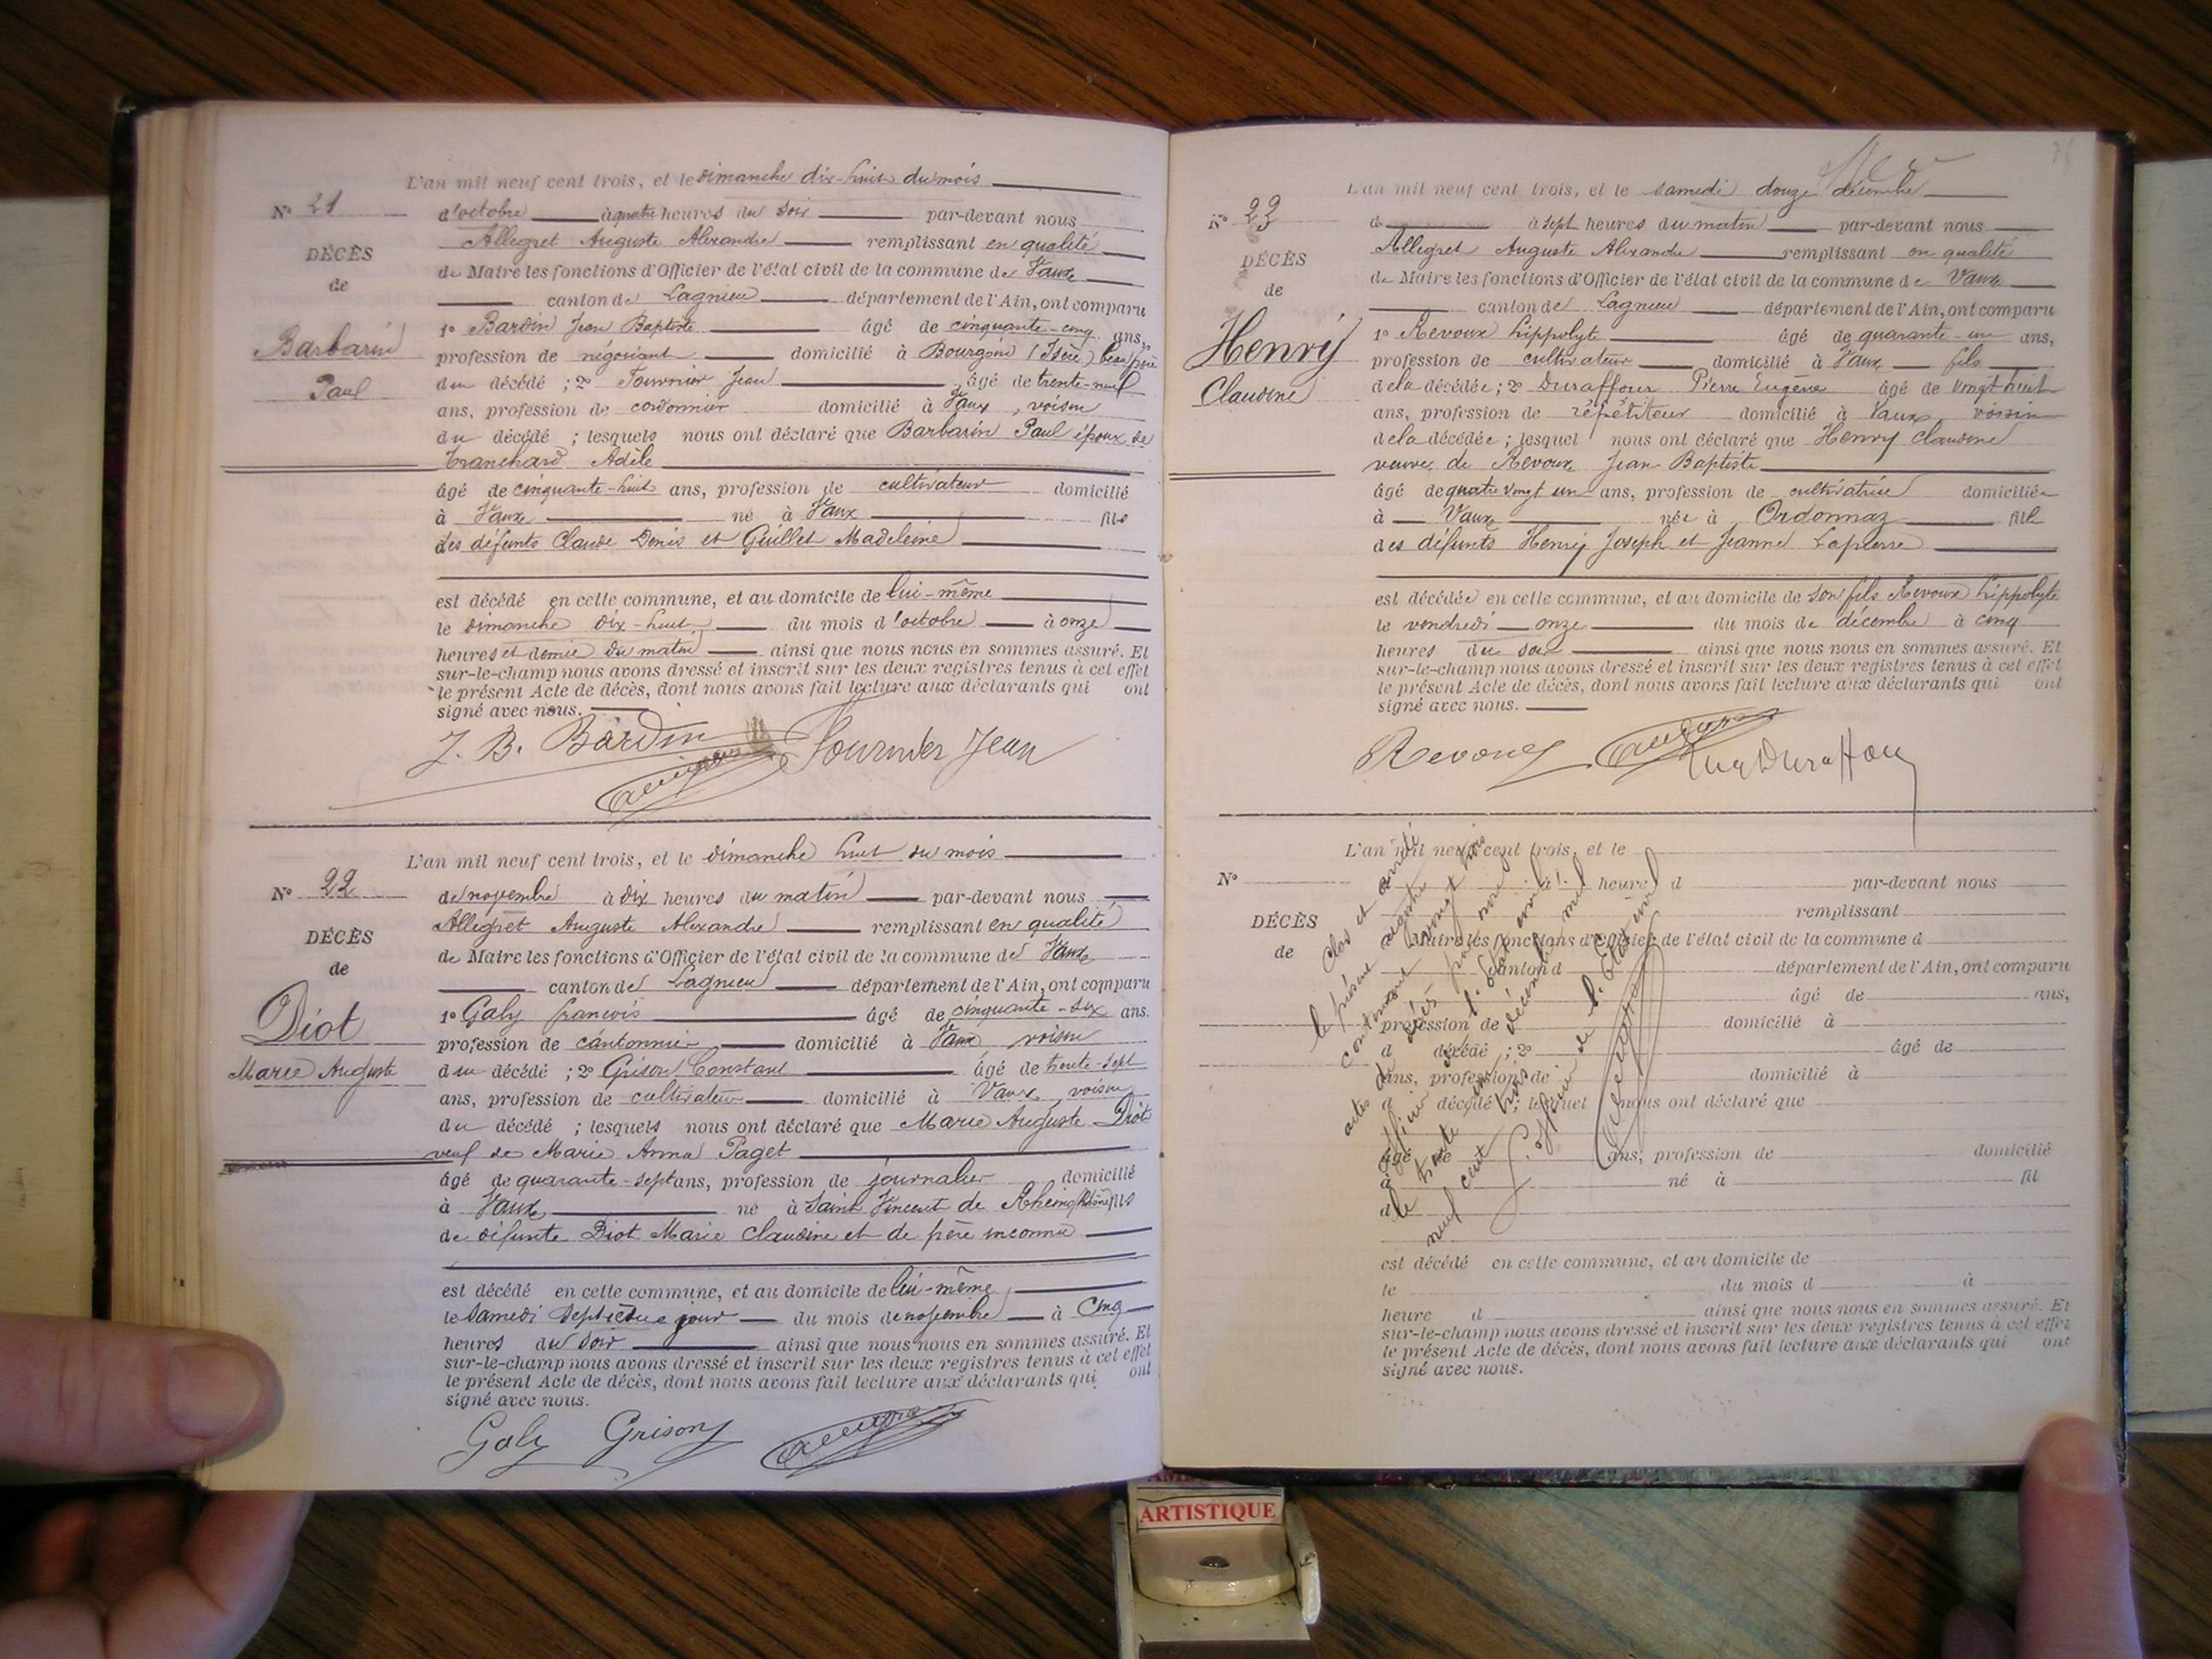 L'an mil neuf cent trois, et le dimanche dix-huit du mois
N° 21
d'octobre à quatre heures du soir par-devant nous
Allegret Auguste Alexandre remplissant en qualité
DÉCÈS
de Maire les fonctions d'Officier de l'état civil de la commune de Vaux
de
canton de Lagnieu département de l'Ain, ont comparu
1° Bardin Jean Baptiste âgé de cinquante-cinq ans,
Barbarin
profession de négociant domicilié à Bourgoin (Isère) beau-frère
Paul
du décédé ; 2° Fournier Jean âgé de trente-neuf
ans, profession de cordonnier domicilié à Vaux, voisin
du décédé ; lesquels nous ont déclaré que Barbarin Paul époux de
Tranchard Adèle
âgé de cinquante-huit ans, profession de cultivateur domicilié
à Vaux né à Vaux fils
des défunts Claude Denis et Guillet Madeleine
est décédé en cette commune, et au domicile de lui-même
le dimanche dix-huit du mois d'octobre à onze
heures et demie du matin ainsi que nous nous en sommes assuré. Et
sur-le-champ nous avons dressé et inscrit sur les deux registres tenus à cet effet
le présent Acte de décès, dont nous avons fait lecture aux déclarants qui ont
signé avec nous.
J. B. Bardin Fournier Jean
L'an mil neuf cent trois, et le dimanche huit du mois
N° 22
de novembre à dix heures du matin par-devant nous
Allegret Auguste Alexandre remplissant en qualité
DÉCÈS
de Maire les fonctions d'Officier de l'état civil de la commune de Vaux
de
canton de Lagnieu département de l'Ain, ont comparu
Diot
1° Galy françois âgé de cinquante-six ans.
profession de cantonnier domicilié à Vaux voisin
Marie Auguste
du décédé ; 2° Grison Constant âgé de trente-sept
ans, profession de cultivateur domicilié à Vaux, voisin
du décédé ; lesquels nous ont déclaré que Marie Auguste Diot
veuf de Marie Anna Paget
âgé de quarante-sept ans, profession de journalier domicilié
à Vaux né à Saint Vincent de Rheins (Rhône) fils
de défunte Diot Marie Claudine et de père inconnu
est décédé en cette commune, et au domicile de lui-même
le Samedi Septième jour du mois de novembre à cinq
heures du soir ainsi que nous nous en sommes assuré. Et
sur-le-champ nous avons dressé et inscrit sur les deux registres tenus à cet effet
le présent Acte de décès, dont nous avons fait lecture aux déclarants qui ont
signé avec nous.
Galy Grison
L'an mil neuf cent trois, et le samedi douze décembre
N° 23
d à sept heures du matin par-devant nous
Allegret Auguste Alexandre remplissant en qualité
DÉCÈS
de Maire les fonctions d'Officier de l'état civil de la commune de Vaux
de
canton de Lagnieu département de l'Ain, ont comparu
Henry
1° Revoux hippolyte âgé de quarante-un ans,
profession de cultivateur domicilié à Vaux fils
Claudine
de la décédée ; 2° Duraffour Pierre Eugène âgé de vingt-huit
ans, profession de répétiteur domicilié à Vaux voisin
de la décédée ; lesquel nous ont déclaré que Henry Claudine
veuve de Revoux Jean Baptiste
âgé de quatre vingt un ans, profession de cultivatrice domiciliée
à Vaux née à Ordonnaz fille
des défunts Henry Joseph et Jeanne Lapierre
est décédée en cette commune, et au domicile de son fils Revoux hippolyte
le vendredi onze du mois de décembre à cinq
heures du soir ainsi que nous nous en sommes assuré. Et
sur-le-champ nous avons dressé et inscrit sur les deux registres tenus à cet effet
le présent Acte de décès, dont nous avons fait lecture aux déclarants qui ont
signé avec nous.
Revoux Eug Duraffour
L'an mil neuf cent trois, et le
N°
à heure d par-devant nous
DÉCÈS
remplissant
de
Maire les fonctions d'Officier de l'état civil de la commune d
canton d département de l'Ain, ont comparu
âgé de ans,
profession de domicilié à
d décédé ; 2° âgé de
ans, profession de domicilié à
d décédé ; lesquel nous ont déclaré que
âgé de ans, profession de domicilié
à né à fil
d
est décédé en cette commune, et au domicile de
le du mois d à
heure d ainsi que nous nous en sommes assuré. Et
sur-le-champ nous avons dressé et inscrit sur les deux registres tenus à cet effet
le présent Acte de décès, dont nous avons fait lecture aux déclarants qui ont
signé avec nous.
Clos et arrêté
le présent registre
contenant vingt trois
actes de décès par nous
officier de l'état civil
le trente un décembre mil
neuf cent trois
L'officier de l'Etat civil
ARTISTIQUE